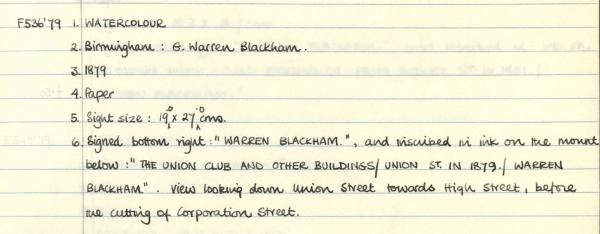 F536'79 1. WATERCOLOUR
2. Birmingham : G. Warren Blackham.
3. 1879
4. Paper
5. Sight size : 19.0 x 27.0 cms.
6. Signed bottom right : "WARREN BLACKHAM.", and inscribed in ink on the mount
below : "THE UNION CLUB AND OTHER BUILDINGS/ UNION ST. IN 1879./ WARREN
BLACKHAM." . View looking down Union Street towards High Street, before
the cutting of Corporation Street.